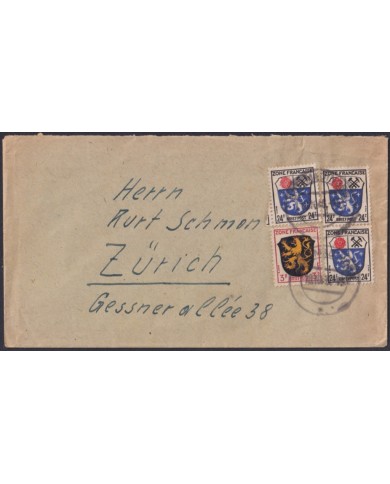 Herrn
Kurt Schmon
Zürich
Gessnerallée 38
ZONE FRANÇAISE
24 24
ZONE FRANÇAISE
24 24
ZONE FRANÇAISE
3
ZONE FRANÇAISE
24 24